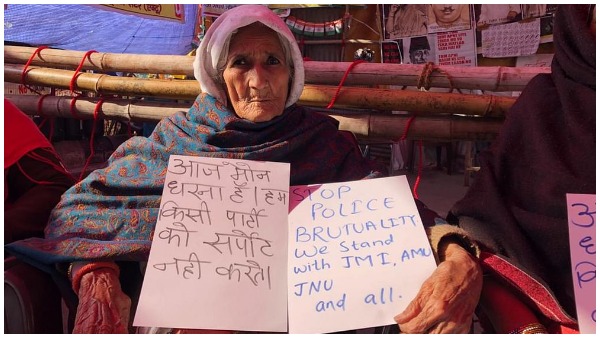 आज मौन
धरना है। हम
किसी पार्टी
को सर्पोट
नही करते।
STOP
POLICE
BRUTUALITY
We Stand
with JMI, AMU
JNU
and all.